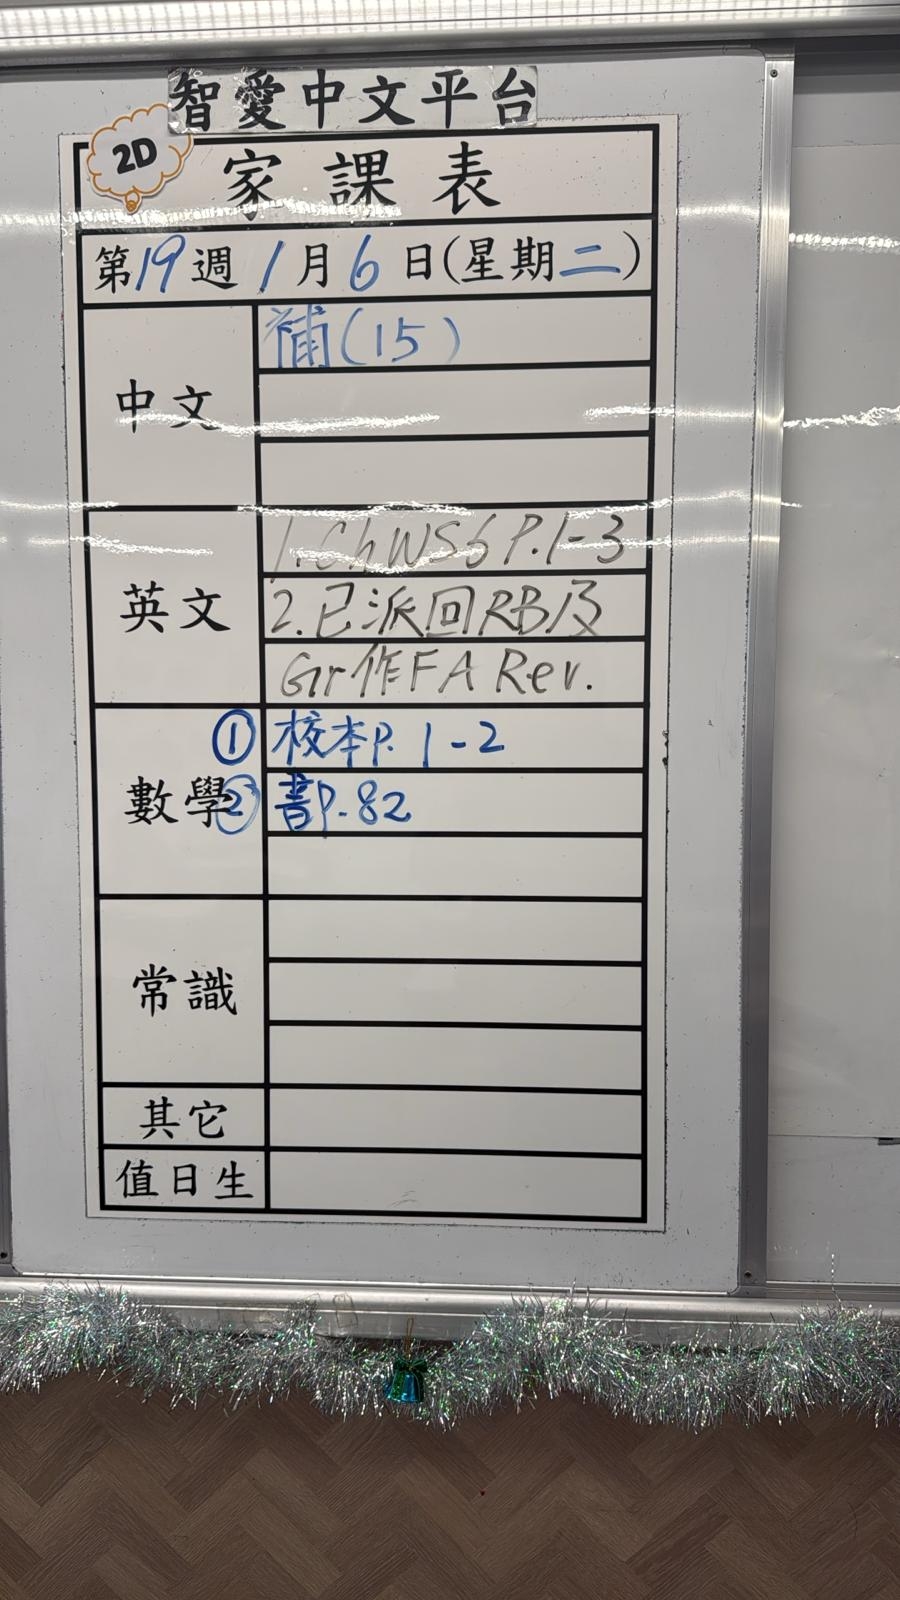 智愛中文平台
2D
家課表
第19週 1月6日(星期二)
中文
補(15)
英文
1. Ch WS6 P.1-3
2. 已派回RB及
Gr作FA Rev.
數學
① 校本P. 1-2
② 書P.82
常識
其它
值日生